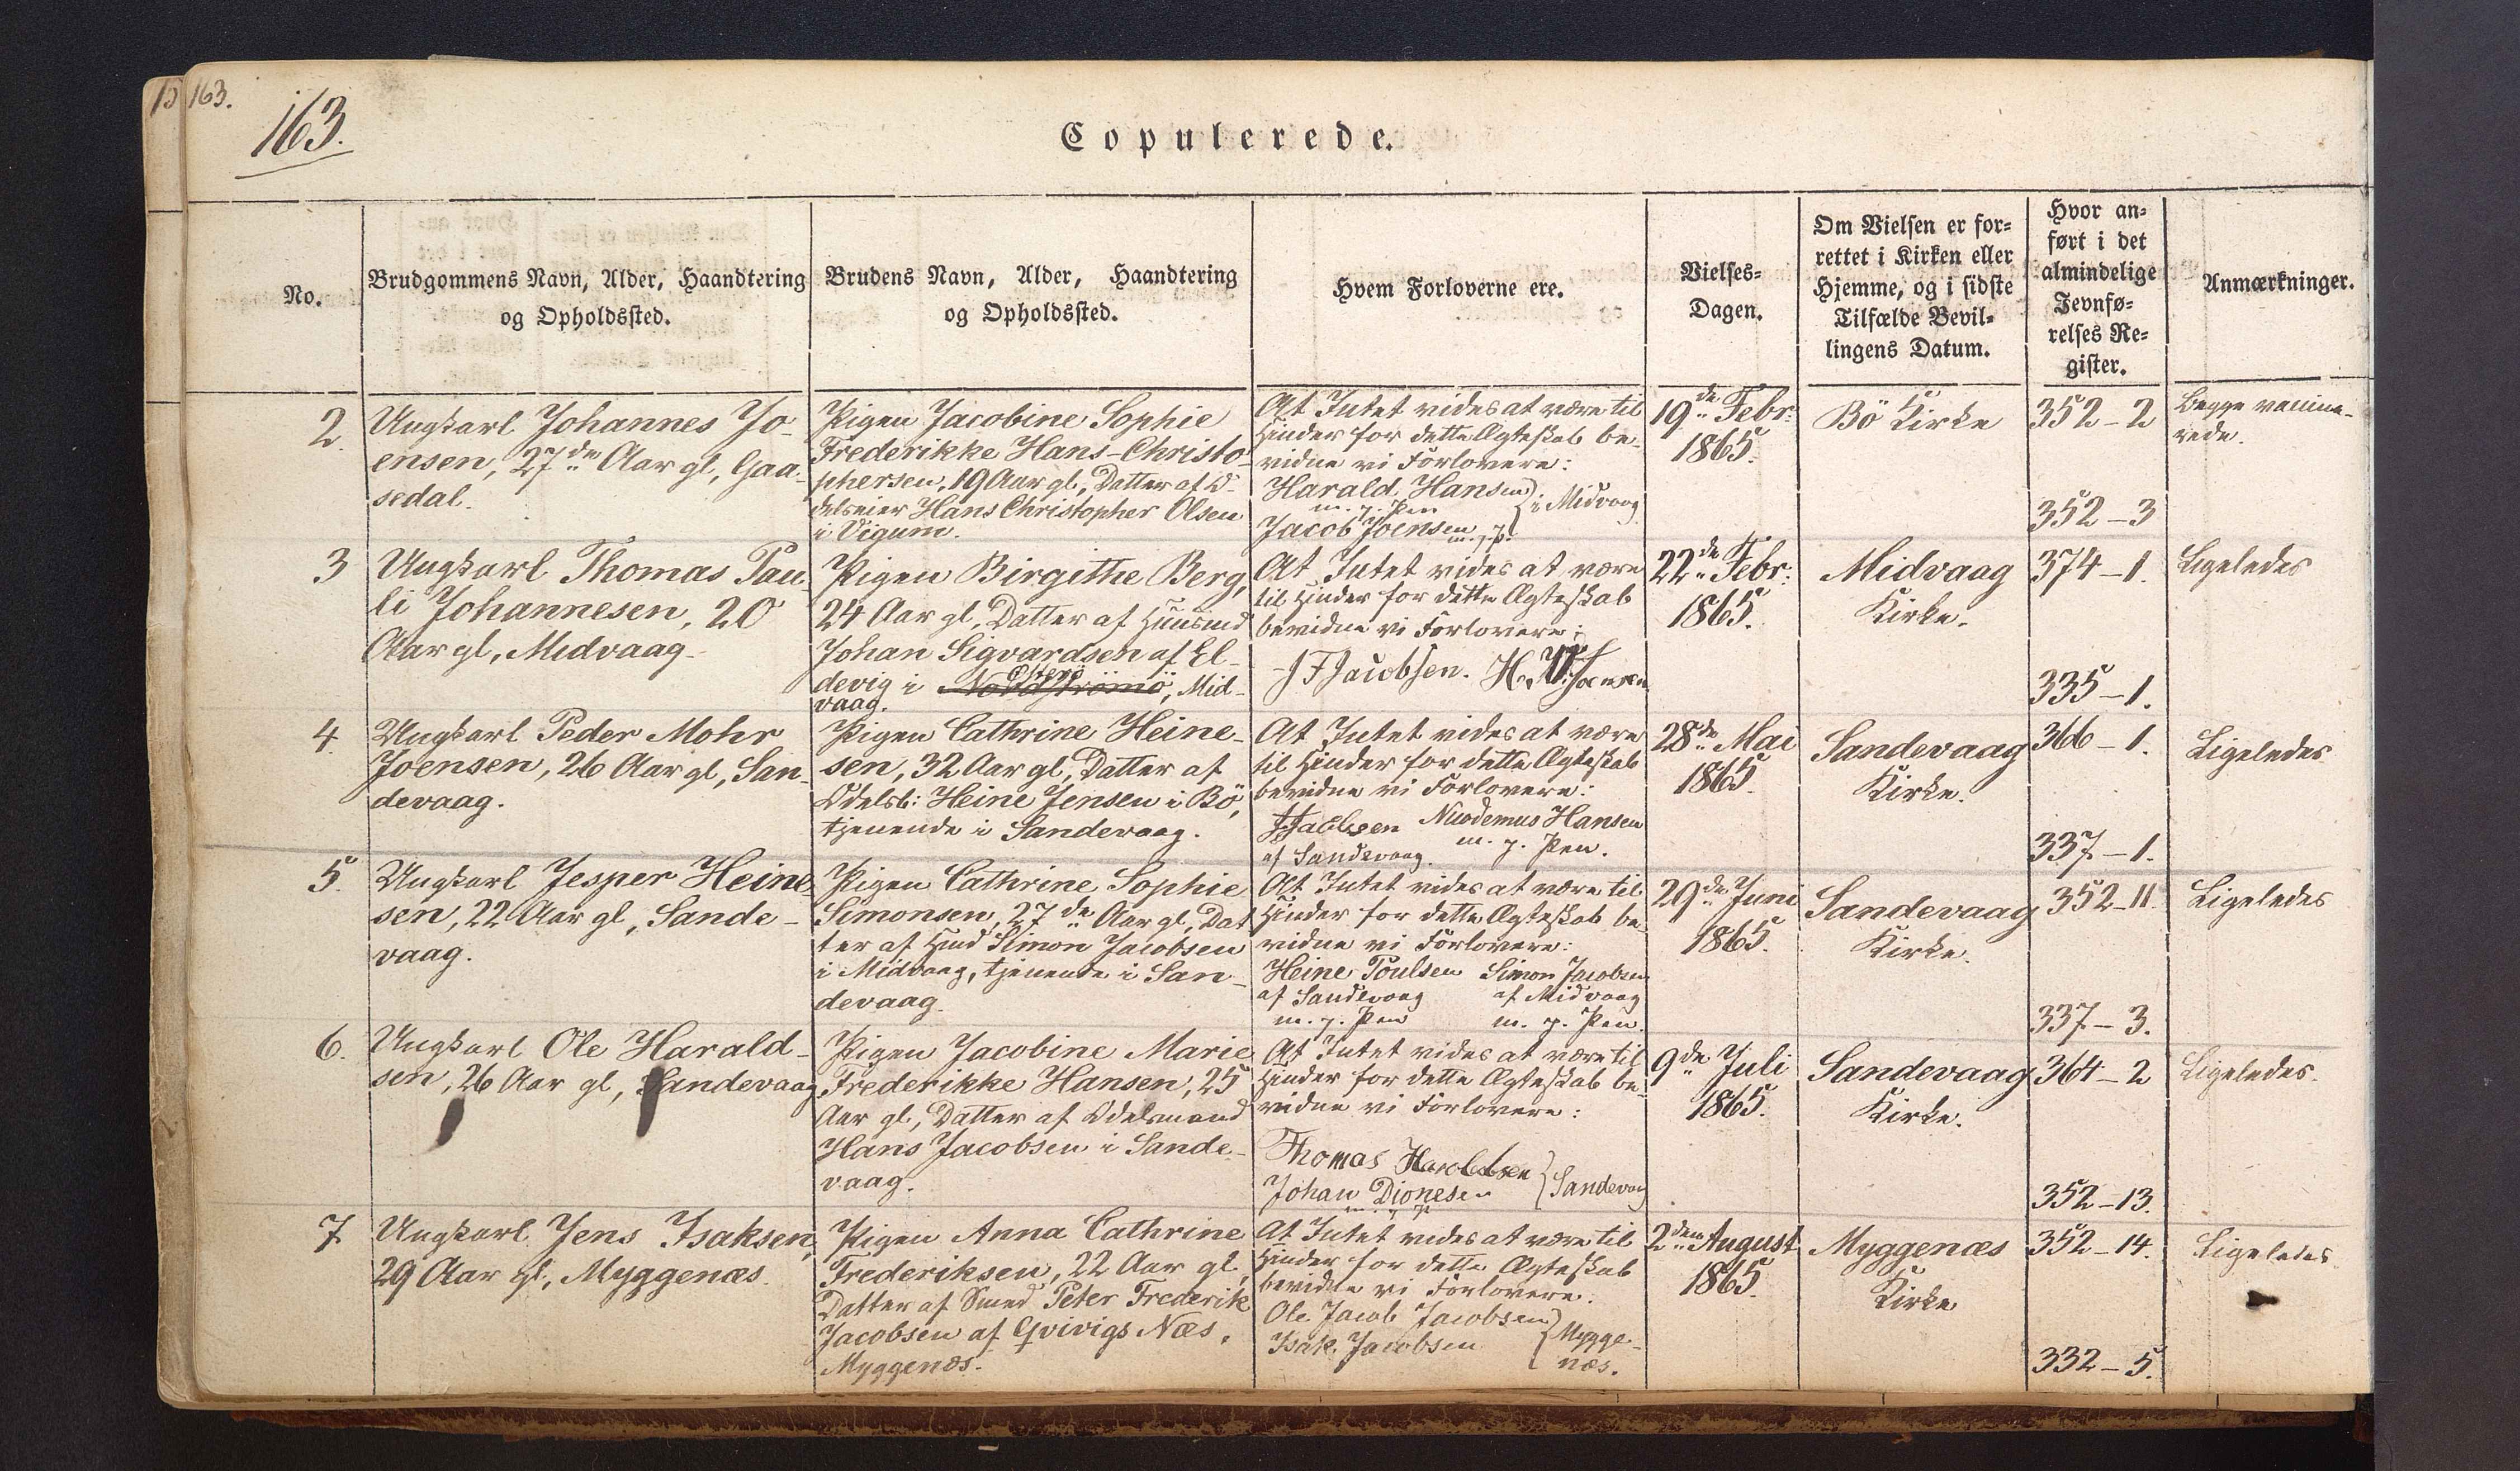 163.
163.
Copulerede.
No.
Brudgommens Navn, Alder, Haandtering
og Opholdssted.
Brudens Navn, Alder, Haandtering
og Opholdssted.
Hvem Forloverne ere.
Vielses-
Dagen.
Om Vielsen er for-
rettet i Kirken eller
Hjemme, og i sidste
Tilfælde Bevil-
lingens Datum.
Hvor an-
ført i det
almindelige
Jevnfø-
relses Re-
gister.
Anmærkninger.
2.
Ungkarl Johannes Jo-
ensen, 27de Aar gl, Gaa-
sedal.
Pigen Jacobine Sophie
Frederikke Hans-Christo-
phersen, 19 Aar gl, Datter af O-
delseier Hans Christopher Olsen
i Vigum.
At Intet vides at være til
Hinder for dette Ægteskab be-
vidne vi Forlovere:
Harald Hansen
m. p. Pen
Jacob Joensen
m. p. P.
i Midvaag
19de Febr:
1865.
Bö Kirke
352-2
352-3
Begge vaccine-
rede.
3
Ungkarl Thomas Pau-
li Johannesen, 20
Aar gl, Midvaag.
Pigen Birgithe Berg,
24 Aar gl, Datter af Huusmd
Johan Sigvardsen af El-
devig i Nordströmö, Mid-
Österö
vaag.
At Intet vides at være
til Hinder for dette Ægteskab
bevidne vi Forlovere:
J F Jacobsen. H. Joensen
22de Febr:
1865.
Midvaag
Kirke.
374-1.
335-1.
Ligeledes
4.
Ungkarl Peder Mohr
Joensen, 26 Aar gl, San-
devaag.
Pigen Cathrine Heine-
sen, 32 Aar gl, Datter af
Odelsb: Heine Jensen i Bö,
tjenende i Sandevaag.
At Intet vides at være
til Hinder for dette Ægteskab
bevidne vi Forlovere:
Jacobsen Nicodemus Hansen
af Sandevaag. m. p. Pen.
28de Mai
1865.
Sandevaag
Kirke.
366-1.
337-1.
Ligeledes
5.
Ungkarl Jesper Heine-
sen, 22 Aar gl, Sande-
vaag.
Pigen Cathrine Sophie
Simonsen, 27de Aar gl, Dat-
ter af Hmd Simon Jacobsen
i Midvaag, tjenende i San-
devaag.
At Intet vides at være til
Hinder for dette Ægteskab be-
vidne vi Forlovere:
Heine Poulsen Simon Jacobsen
af Sandevaag af Midvaag
m. p. Pen m. p. Pen.
29de Juni
1865.
Sandevaag
Kirke.
352-11.
337-3.
Ligeledes
6.
Ungkarl Ole Harald-
sen, 26 Aar gl, Sandevaag
Pigen Jacobine Marie
Frederikke Hansen, 25
Aar gl, Datter af Odelsmand
Hans Jacobsen i Sande-
vaag.
At Intet vides at være til
Hinder for dette Ægteskab be-
vidne vi Forlovere:
Thomas Haraldsen
Johan Dionesen
m. p. P
Sandevaag
9de Juli
1865.
Sandevaag
Kirke.
364-2
352-13.
Ligeledes.
7.
Ungkarl Jens Isaksen,
29 Aar gl, Myggenæs.
Pigen Anna Cathrine
Frederiksen, 22 Aar gl,
Datter af Smed Peter Frederik
Jacobsen af Qvivigs Næs,
Myggenæs.
At Intet vides at være til
Hinder for dette Ægteskab
bevidne vi Forlovere.
Ole Jacob Jacobsen
Isak Jacobsen
Mygge-
næs.
2den August
1865.
Myggenæs
Kirke
352-14.
332-5.
Ligeledes